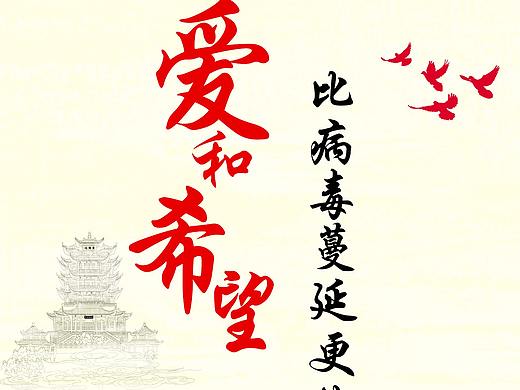 爱和希望
比病毒蔓延更